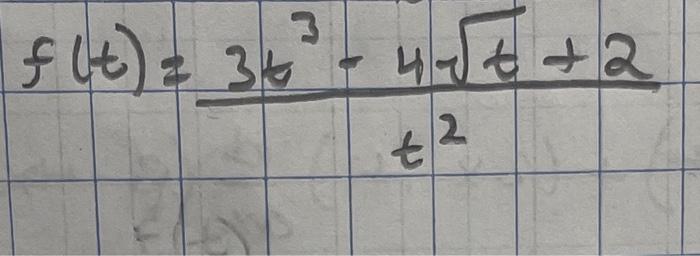 f(t) = 3t³ - 4√t + 2
t²